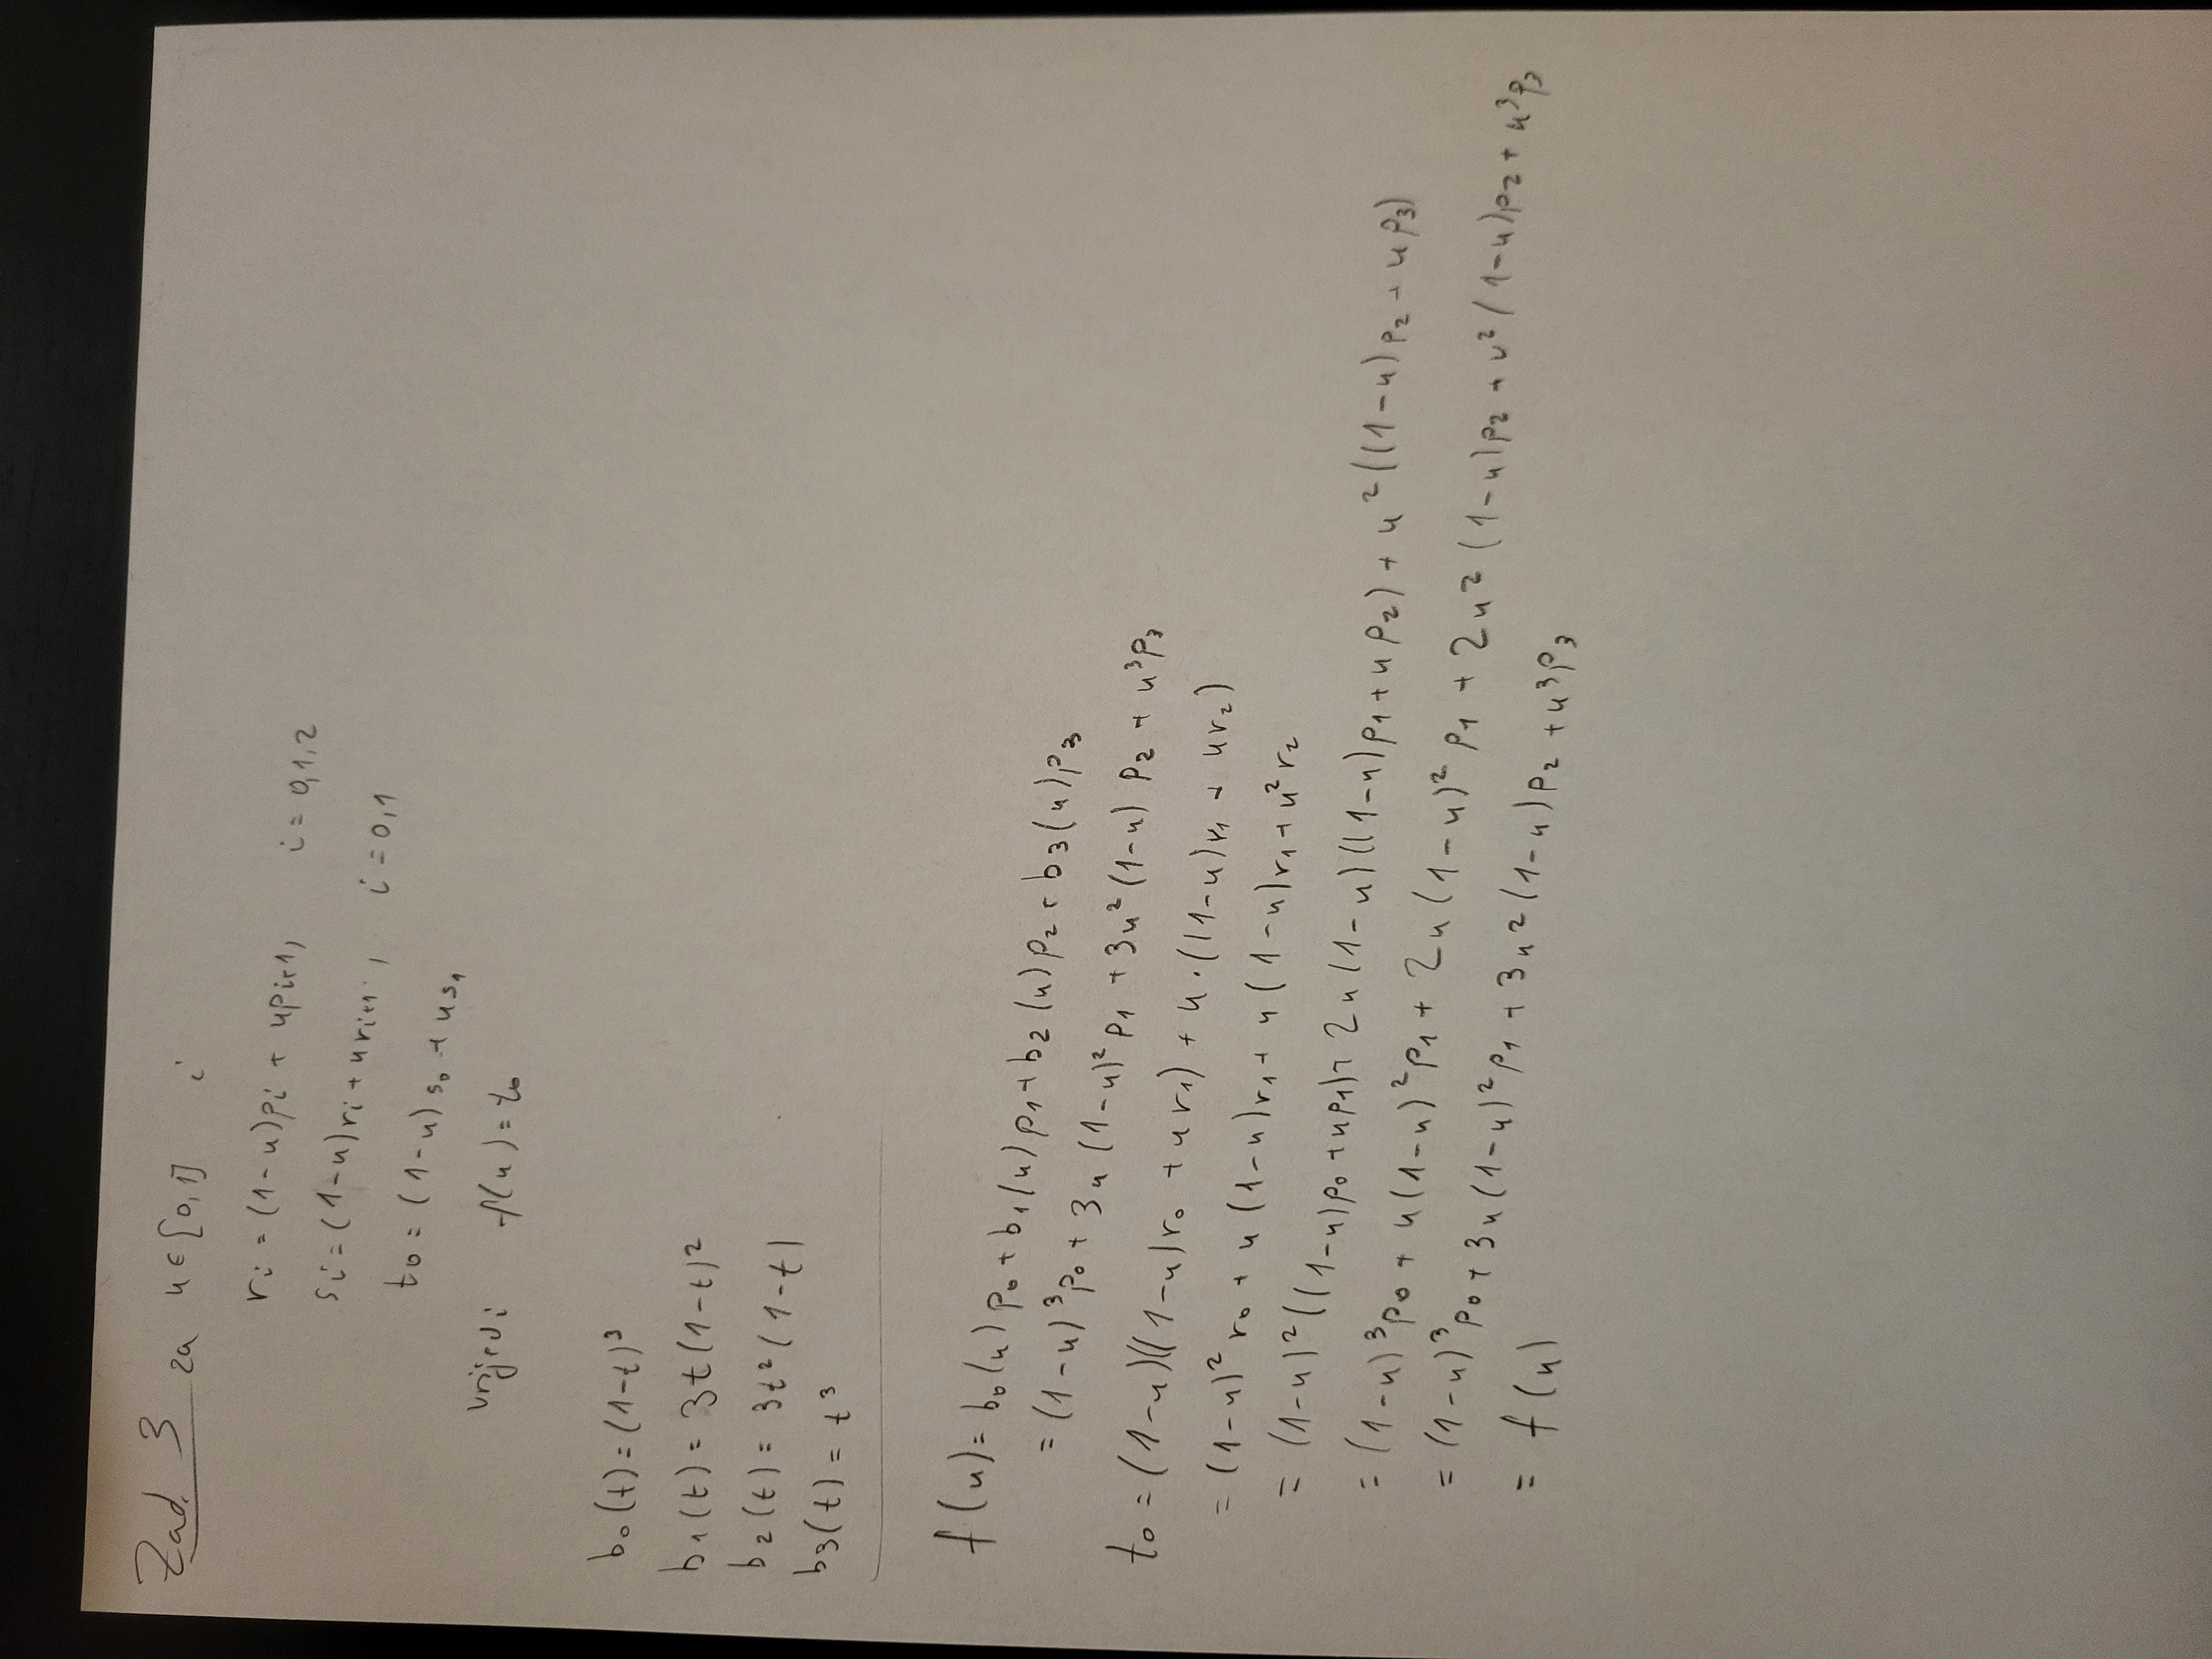 Zad. 3 za u ∈ [0,1] i
r_i = (1-u)p_i + u p_{i+1}, i = 0,1,2
s_i = (1-u)r_i + u r_{i+1}, i = 0,1
t_0 = (1-u)s_0 + u s_1
vrijedi f(u) = t_0
b_0(t) = (1-t)^3
b_1(t) = 3t(1-t)^2
b_2(t) = 3t^2(1-t)
b_3(t) = t^3
f(u) = b_0(u)p_0 + b_1(u)p_1 + b_2(u)p_2 + b_3(u)p_3
= (1-u)^3 p_0 + 3u(1-u)^2 p_1 + 3u^2(1-u) p_2 + u^3 p_3
t_0 = (1-u)((1-u)r_0 + u r_1) + u·((1-u)r_1 + u r_2)
= (1-u)^2 r_0 + u(1-u)r_1 + u(1-u)r_1 + u^2 r_2
= (1-u)^2((1-u)p_0 + u p_1) + 2u(1-u)((1-u)p_1 + u p_2) + u^2((1-u)p_2 + u p_3)
= (1-u)^3 p_0 + u(1-u)^2 p_1 + 2u(1-u)^2 p_1 + 2u^2(1-u)p_2 + u^2(1-u)p_2 + u^3 p_3
= (1-u)^3 p_0 + 3u(1-u)^2 p_1 + 3u^2(1-u)p_2 + u^3 p_3
= f(u)